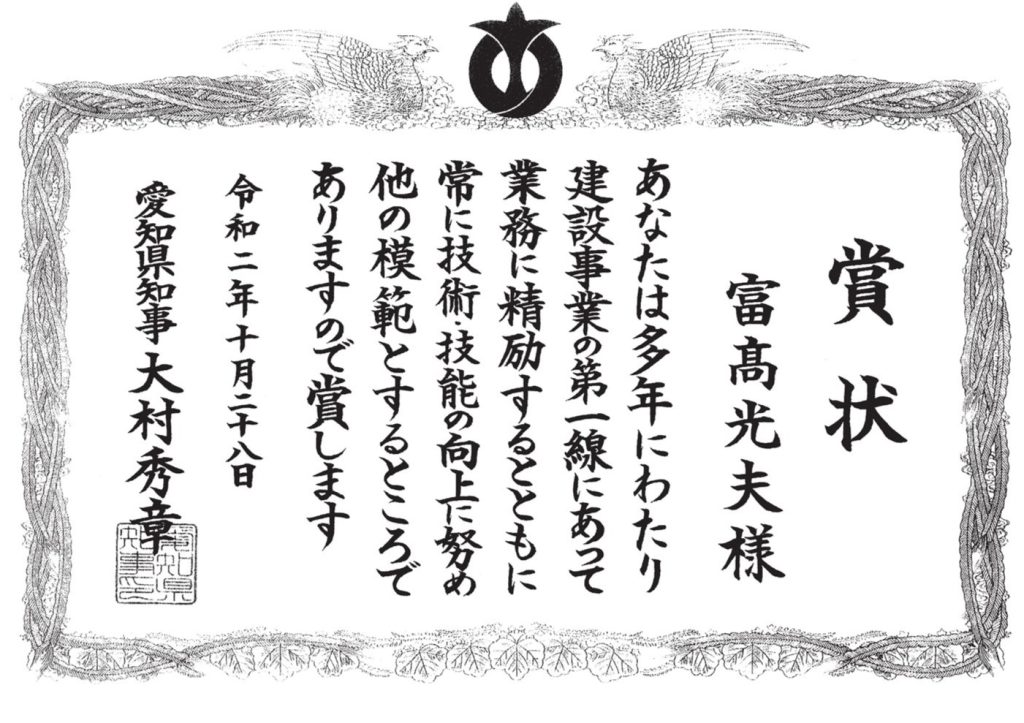 賞状
富髙光夫様
あなたは多年にわたり
建設事業の第一線にあって
業務に精励するとともに
常に技術・技能の向上に努め
他の模範とするところで
ありますので賞します
令和二年十月二十八日
愛知県知事 大村秀章
愛知県
知事之印